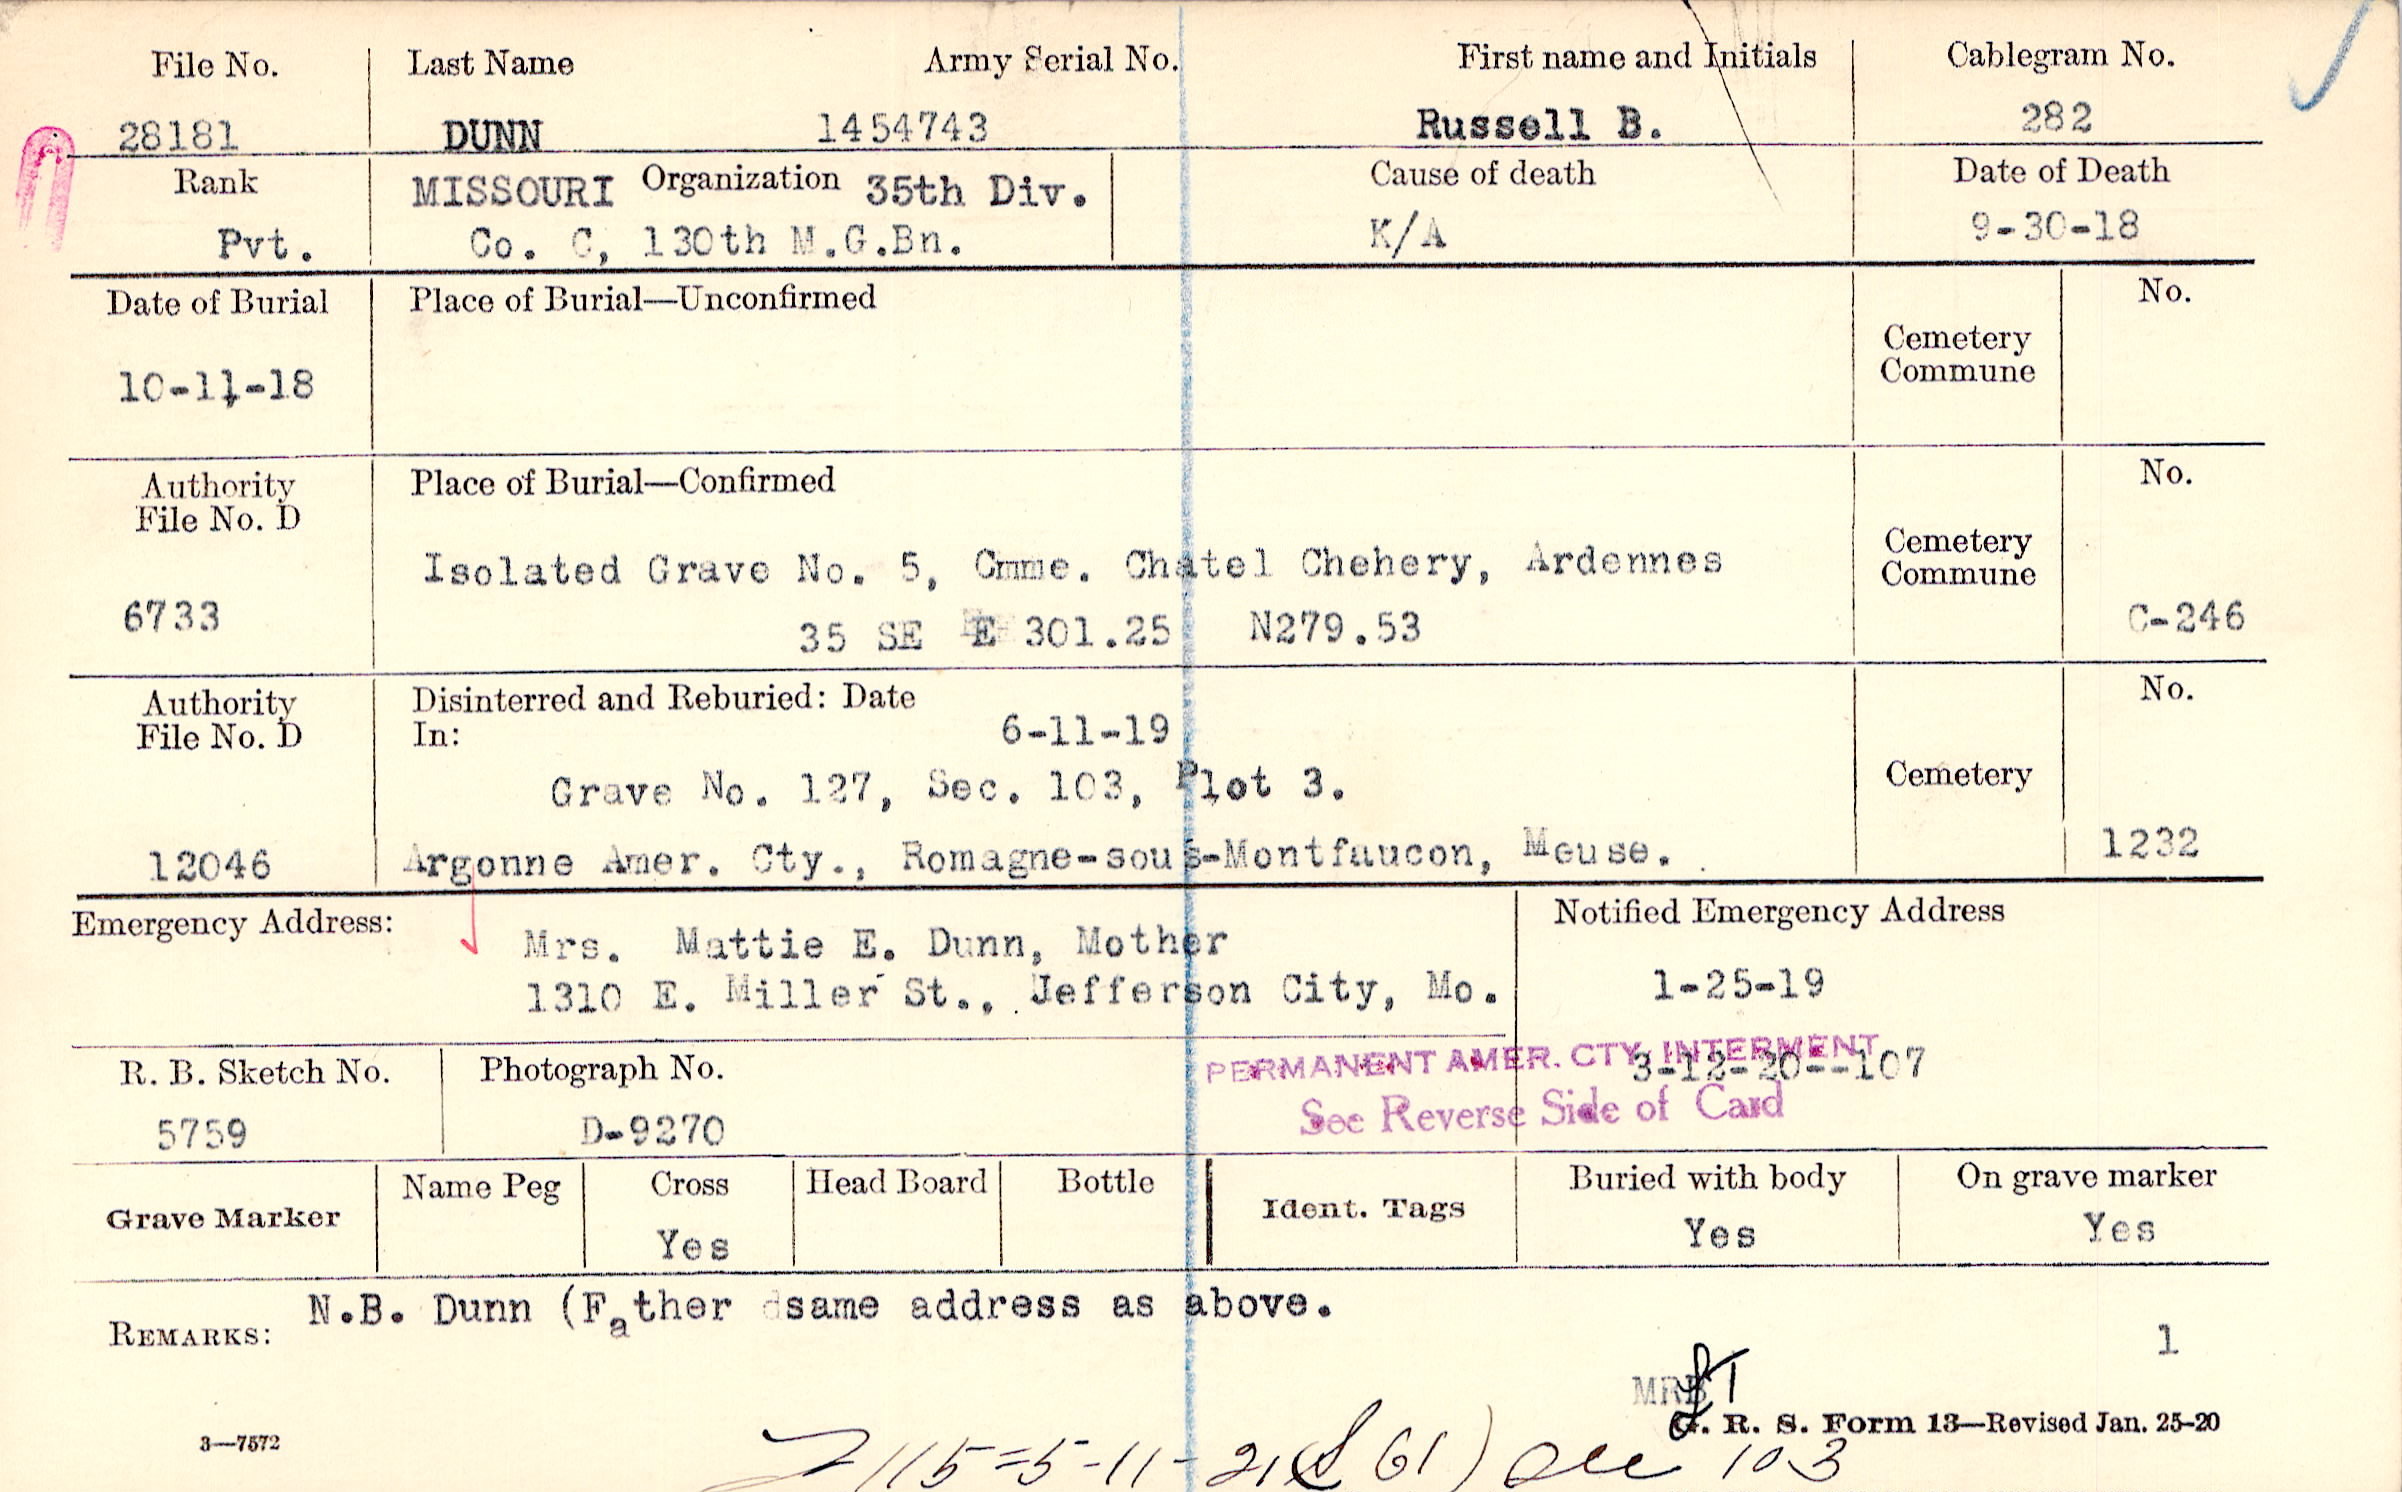 File No. Last Name Army Serial No. First name and Initials Cablegram No.
28181 DUNN 1454743 Russell B. 282
Rank MISSOURI Organization 35th Div. Cause of death Date of Death
Pvt. Co. C, 130th M.G.Bn. K/A 9-30-18
Date of Burial Place of Burial—Unconfirmed No.
Cemetery
Commune
10-11-18
Authority Place of Burial—Confirmed No.
File No. D
Cemetery
Commune
Isolated Grave No. 5, Cmme. Chatel Chehery, Ardennes
6733 35 SE E 301.25 N279.53 C-246
Authority Disinterred and Reburied: Date No.
File No. D In: 6-11-19
Grave No. 127, Sec. 103, Plot 3. Cemetery
12046 Argonne Amer. Cty., Romagne-sous-Montfaucon, Meuse. 1232
Emergency Address: Notified Emergency Address
Mrs. Mattie E. Dunn, Mother
1310 E. Miller St., Jefferson City, Mo. 1-25-19
PERMANENT AMER. CTY. INTERMENT
3-12-20--107
See Reverse Side of Card
R. B. Sketch No. Photograph No.
5759 D-9270
Grave Marker Name Peg Cross Head Board Bottle Ident. Tags Buried with body On grave marker
Yes Yes Yes
REMARKS: N.B. Dunn (Father same address as above.
1
MRB
G. R. S. Form 13—Revised Jan. 25-20
3—7572
115=5-11-21 61) 103